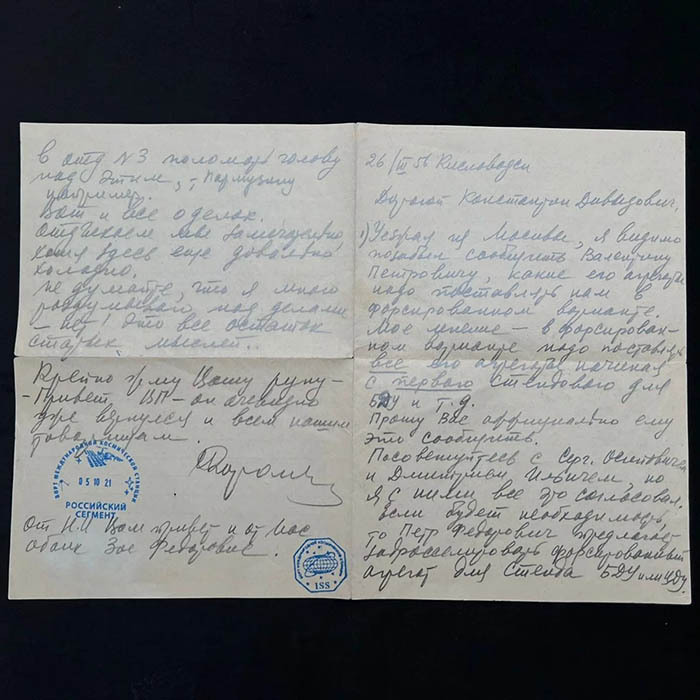 26/III 56 Кисловодск
Дорогой Константин Давыдович,
1) Уезжая из Москвы, я видимо
позабыл сообщить Валентину
Петровичу, какие его агрегаты
надо поставлять нам в
форсированном варианте.
Мое мнение – в форсирован-
ном варианте надо поставлять
все его агрегаты начиная
с первого стендового для
БДУ и т.д.
Прошу Вас официально ему
это сообщить.
Посоветуйтесь с Серг. Осиповичем
и Дмитрием Ильичем, но
я с ними все это согласовал.
Если будет необходимость,
то Петр Федорович предлагает
задросселировать форсированный
агрегат для стенда БДУ или ЦДУ.
в отд N3 поломать голову
над этим,
например.
Вот и все о делах.
Отдыхаем мы замечательно
хотя здесь еще довольно
холодно.
Не думайте, что я много
раздумываю над делами
– нет! Это все остаток
старых мыслей..
Крепко жму Вашу руку –
– Привет ВП – он очевидно
уже вернулся и всем нашим
товарищам.
Королев
БОРТ МЕЖДУНАРОДНОЙ КОСМИЧЕСКОЙ СТАНЦИИ
05 10 21
РОССИЙСКИЙ
СЕГМЕНТ
От Н.И Вам привет и от нас
обоих Зое Федоровне.
ISS